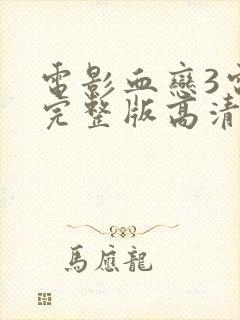 電影血戀3電
完整版高清
馬應龍